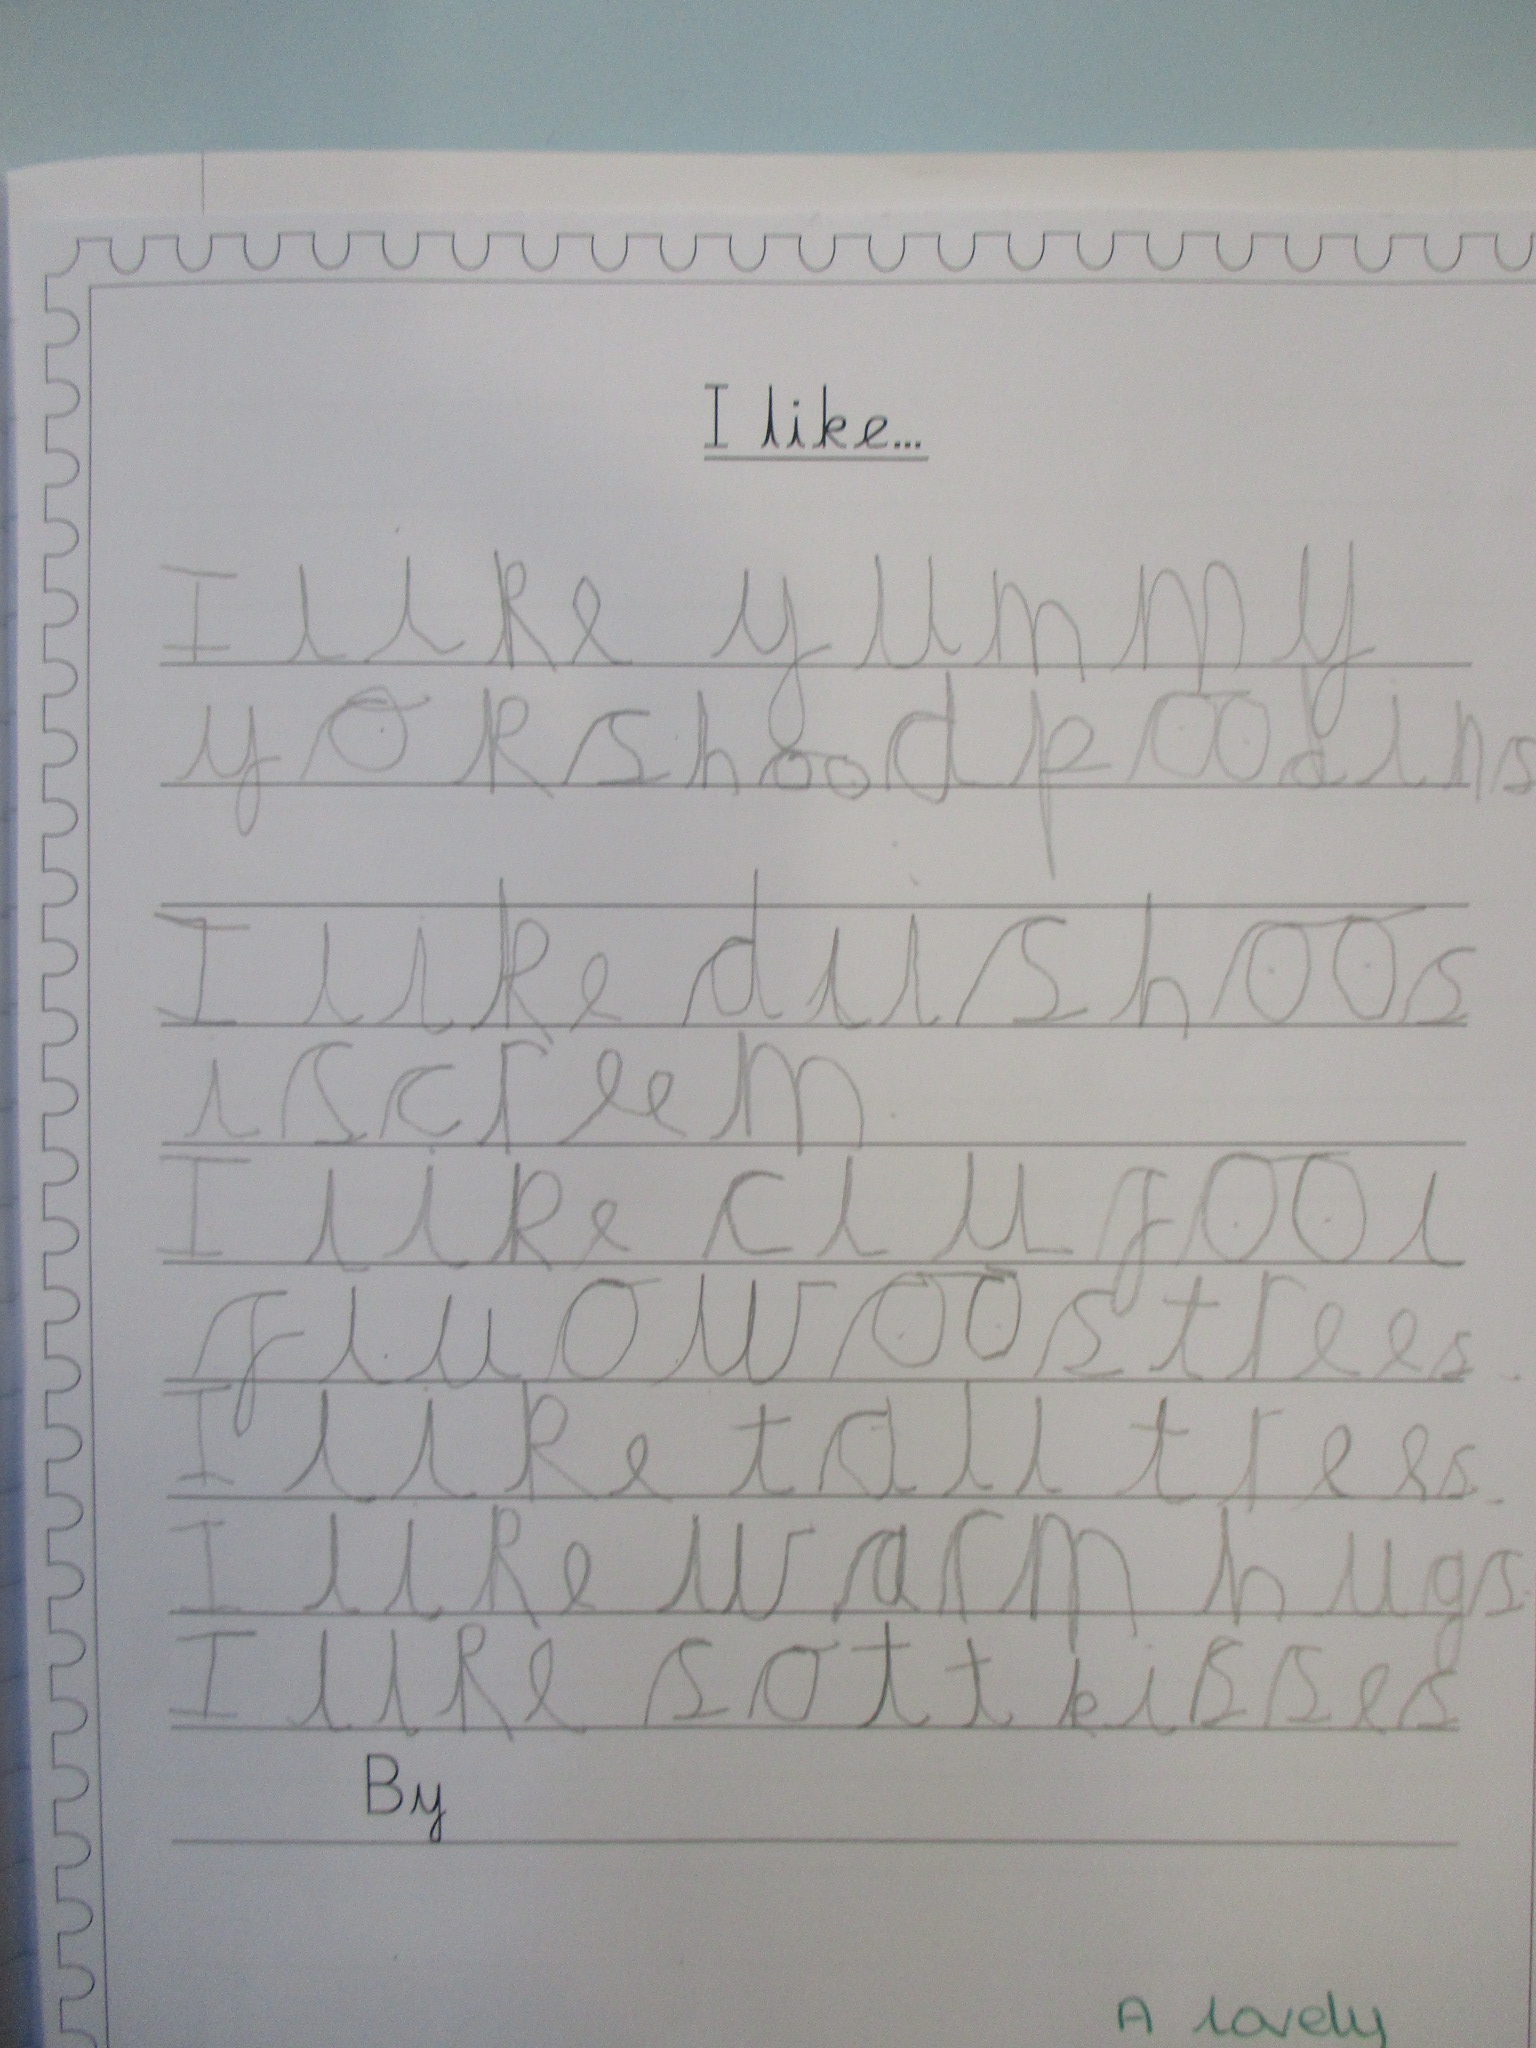 I like...
I like yummy
yorkshoodpoodins
I like dilishoos
iscreem.
I like cl u f oo l
fluowoos trees.
I like tall trees.
I like warm hugs.
I like soft kisses
By
A lovely